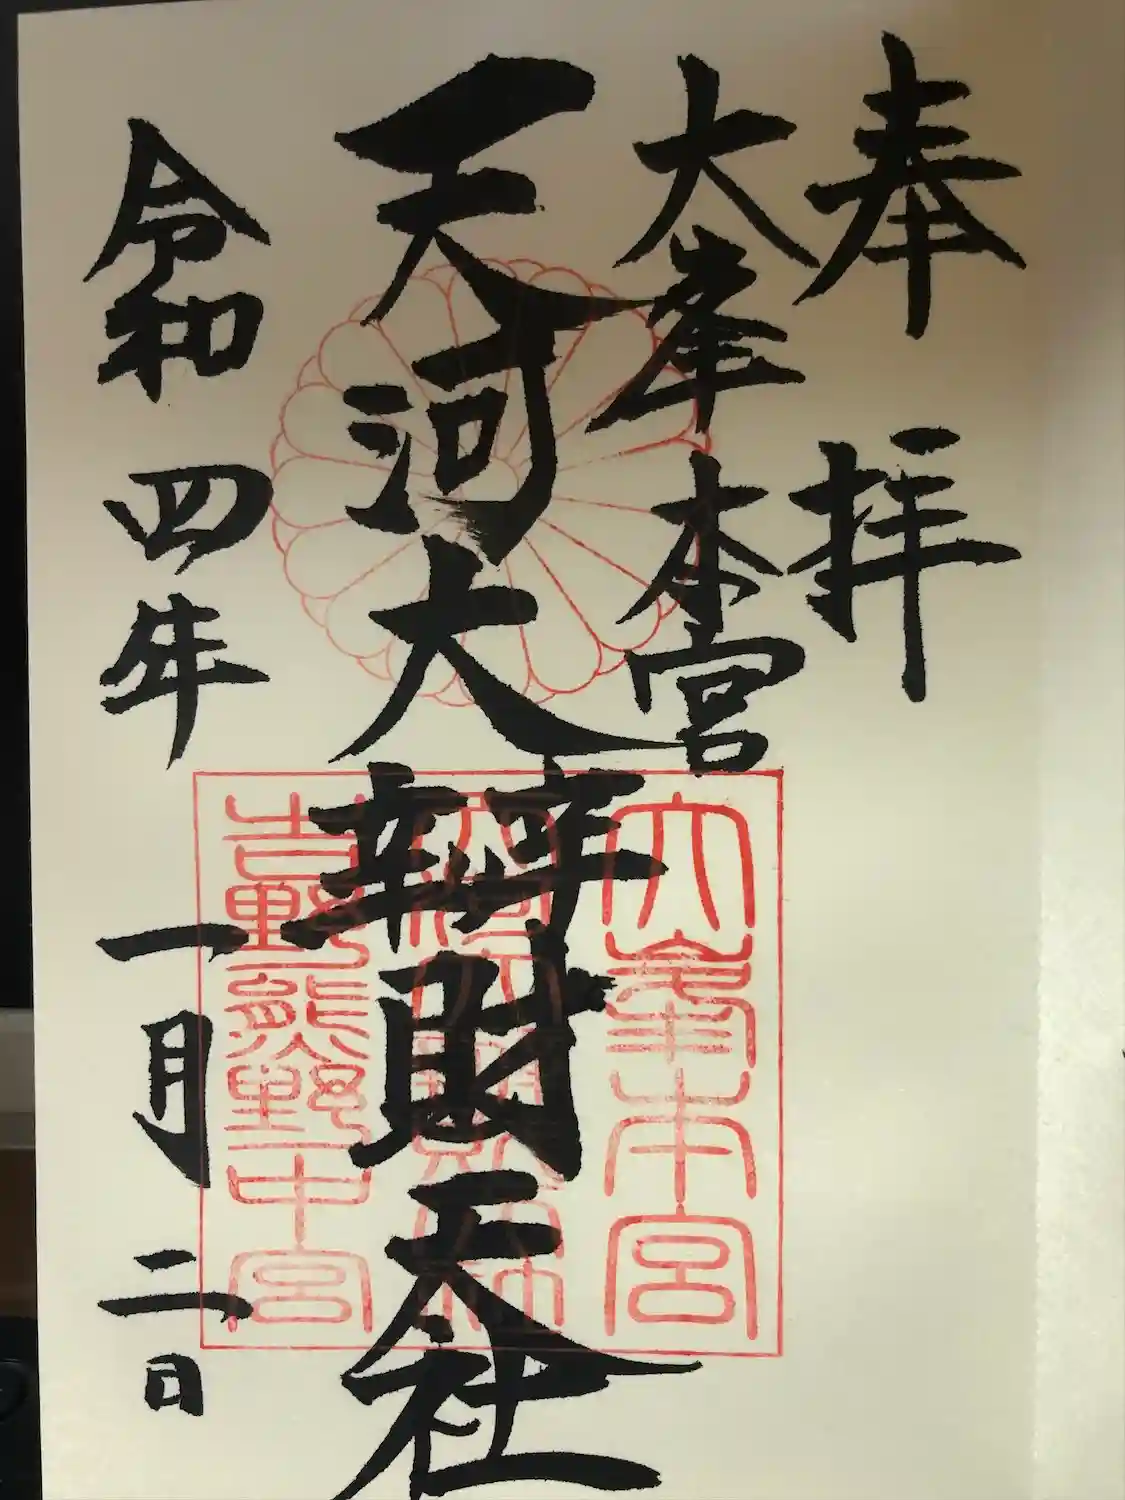 奉拝
大峯本宮
天河大辨財天社
令和四年一月二日
大峯本宮
吉野熊野中宮